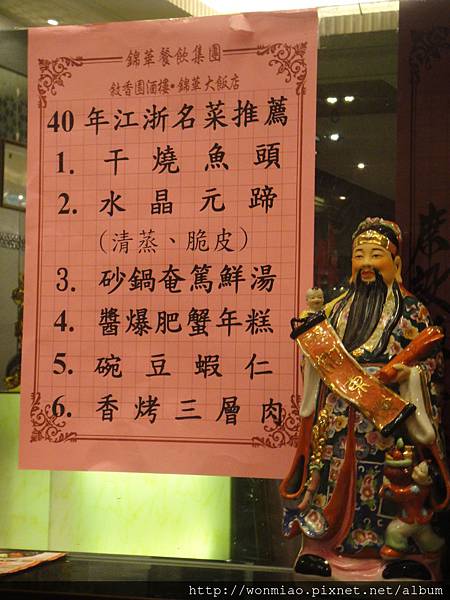 錦華餐飲集團
敍香園酒樓•錦華大飯店
40 年江浙名菜推薦
1. 干燒魚頭
2. 水晶元蹄
(清蒸、脆皮)
3. 砂鍋奄篤鮮湯
4. 醬爆肥蟹年糕
5. 碗豆蝦仁
6. 香烤三層肉
http://wonmiao.pixnet.net/album